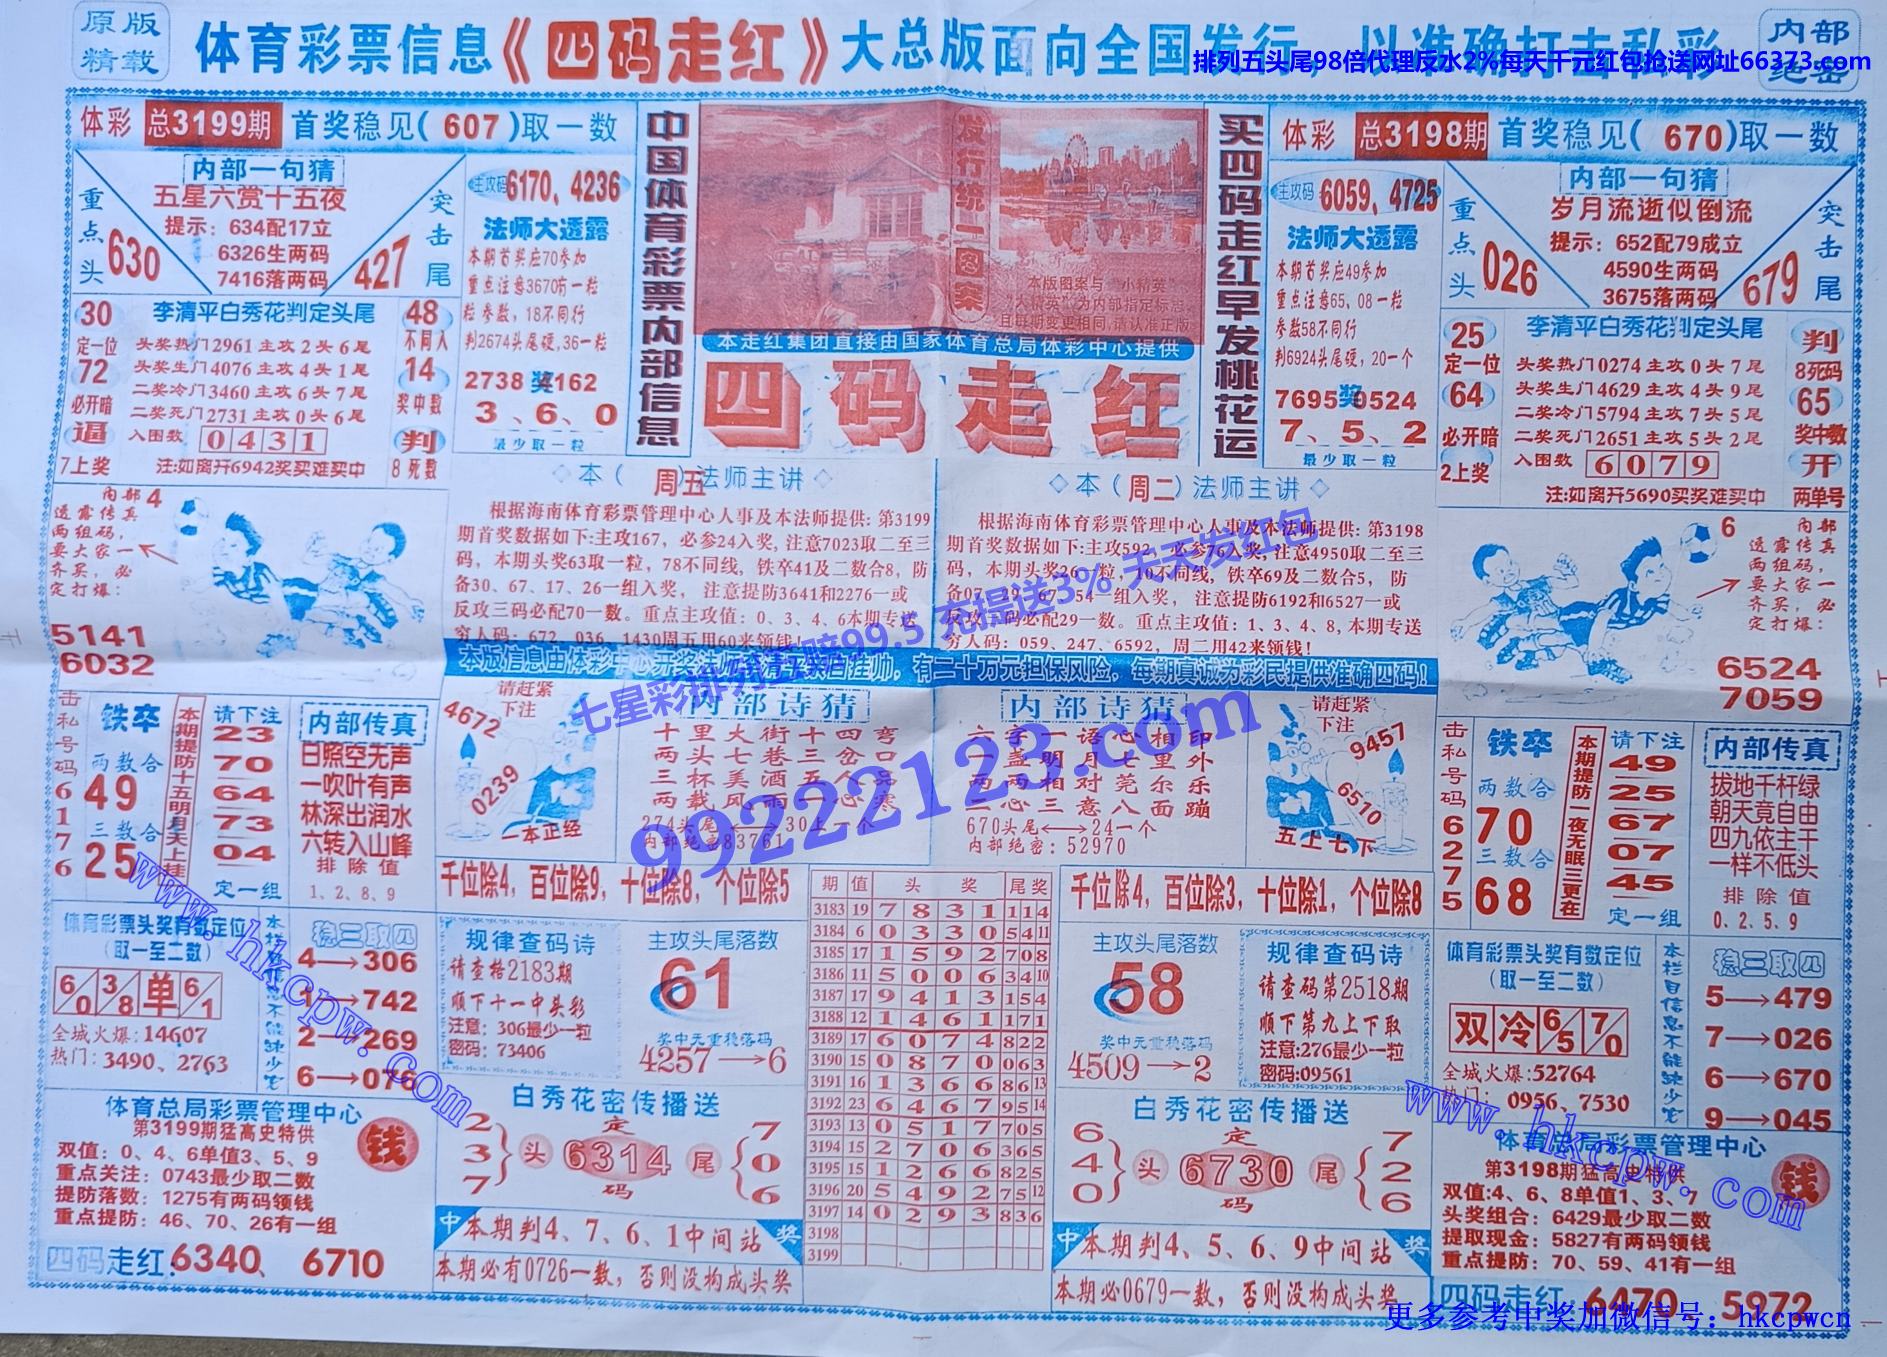 原版
精载
体育彩票信息《四码走红》大总版面向全国发行，以准确打击私彩
内部
绝密
排列五头尾98倍代理反水2%每天千元红包抢送网址66373.com
体彩 总3199期 首奖稳见(607)取一数
内部一句猜
五星六赏十五夜
提示：634配17立
6326生两码
7416落两码
重点头
630
突击尾
427
主攻码 6170、4236
法师大透露
本期首奖应70参加
重点注意3670有一粒
粒参数，18不同行
判2674头尾硬,36一粒
2738奖4162
3、6、0
最少取一粒
30
定一位
72
必开暗
逼
7上奖
李清平白秀花判定头尾
头奖热门2961主攻2头6尾
头奖生门4076主攻4头1尾
二奖冷门3460主攻6头7尾
二奖死门2731主攻0头6尾
入围数 0431
注:如离开6942奖买难买中
48
不同入
14
奖中数
判
8死数
中国体育彩票内部信息
发行统一图案
本版图案与“小精英”
“大精英”为内部指定标志，
且每期变更相同,请认准正版
本走红集团直接由国家体育总局体彩中心提供
四码走红
买四码走红早发桃花运
体彩 总3198期 首奖稳见(670)取一数
主攻码 6059、4725
法师大透露
本期首奖应49参加
重点注意65、08一粒
参数58不同行
判6924头尾硬，20一个
7695奖0524
7、5、2
最少取一粒
内部一句猜
岁月流逝似倒流
提示：652配79成立
4590生两码
3675落两码
重点头
026
突击尾
679
25
定一位
64
必开暗
2上奖
李清平白秀花判定头尾
头奖热门0274主攻0头7尾
头奖生门4629主攻4头9尾
二奖冷门5794主攻7头5尾
二奖死门2651主攻5头2尾
入围数 6079
注:如离开5690买奖难买中
判
8死码
65
奖中数
开
两单号
内部4
透露传真
两组码，
要大家一
齐买，必
定打爆：
5141
6032
◇本（周五）法师主讲◇
根据海南体育彩票管理中心人事及本法师提供: 第3199
期首奖数据如下:主攻167，必参24入奖, 注意7023取二至三
码，本期头奖63取一粒，78不同线, 铁卒41及二数合8，防
备30、67、17、26一组入奖， 注意提防3641和2276一或
反攻三码必配70一数。重点主攻值：0、3、4、6本期专送
穷人码：672、036、1430周五用60来领钱!
◇本（周二）法师主讲◇
根据海南体育彩票管理中心人事及本法师提供: 第3198
期首奖数据如下:主攻592，必参76入奖,注意4950取二至三
码，本期头奖26一粒，10不同线，铁卒69及二数合5，防
备07、29、67、54一组入奖， 注意提防6192和6527一或
反攻三码必配29一数。重点主攻值：1、3、4、8, 本期专送
穷人码：059、247、6592，周二用42来领钱!
本版信息由体彩中心开奖法师李清平亲自挂帅，有二十万元担保风险，每期真诚为彩民提供准确四码!
6 内部
透露传真
两组码，
要大家一
齐买，必
定打爆：
6524
7059
七星彩排列五赔99.5 充提送3% 天天发红包
99222123.com
击私号码61776
铁卒
两数合
49
三数合
25
本期提防十五明月天上挂
请下注
23
70
64
73
04
定一组
内部传真
日照空无声
一吹叶有声
林深出润水
六转入山峰
排除值
1、2、8、9
请赶紧
下注
4672
0239
一本正经
内部诗猜
十里大街十四弯
两头七巷三岔口
三杯美酒五人品
两载风雨一心寒
274头尾⟷30上一个
内部绝密83761
内部诗猜
六字一语心相印
一盏明月七里外
两两相对莞尔乐
一心三意八面蹦
670头尾⟷24一个
内部绝密: 52970
请赶紧
下注
9457
6510
五上七下
击私号码66275
铁卒
两数合
70
三数合
68
本期提防一夜无眠三更在
请下注
49
25
67
07
45
定一组
内部传真
拔地千杆绿
朝天竟自由
四九依主干
一样不低头
排除值
0、2、5、9
千位除4，百位除9，十位除8，个位除5
千位除4，百位除3，十位除1，个位除8
体育彩票头奖有数定位
(取一至二数)
6/0 3/8 单 6/1
全城火爆:14607
热门: 3490、2763
本栏目信息不能缺少它
稳三取四
4→306
742
2→269
6→076
规律查码诗
请查格2183期
顺下十一中头彩
注意：306最少一粒
密码：73406
主攻头尾落数
61
奖中元重稳落码
4257→6
期 值 头奖 尾奖
3183 19 7 8 3 1 1 1 4
3184 6 0 3 3 0 5 4 11
3185 17 1 5 9 2 7 0 8
3186 11 5 0 0 6 3 4 10
3187 17 9 4 1 3 1 5 4
3188 12 1 4 6 1 1 7 1
3189 17 6 0 7 4 8 2 2
3190 15 0 8 7 0 0 6 3
3191 16 1 3 6 6 8 6 13
3192 23 6 4 6 7 9 5 14
3193 13 0 5 1 7 7 0 5
3194 15 2 7 0 6 3 6 5
3195 15 1 2 6 6 8 2 5
3196 20 5 4 9 2 7 5 12
3197 14 0 2 9 3 8 3 6
3198
3199
主攻头尾落数
58
奖中元重稳落码
4509→2
规律查码诗
请查码第2518期
顺下第九上下取
注意:276最少一粒
密码:09561
体育彩票头奖有数定位
(取一至二数)
双 冷 6/5 7/0
全城火爆:52764
热门： 0956、7530
本栏目信息不能缺少它
稳三取四
5→479
7→026
6→670
9→045
体育总局彩票管理中心
第3199期猛高史特供
双值：0、4、6单值3、5、9
重点关注：0743最少取二数
提防落数：1275有两码领钱
重点提防：46、70、26有一组
钱
四码走红:6340、 6710
白秀花密传播送
2 3 7 头 定 6314 码 尾 7 0 6
中 本期判4、7、6、1中间站 奖
本期必有0726一数，否则没构成头奖
白秀花密传播送
6 4 0 头 定 6730 码 尾 7 2 6
中 本期判4、5、6、9中间站 奖
本期必0679一数，否则没构成头奖
体育总局彩票管理中心
第3198期猛高史特供
双值:4、6、8单值1、3、7
头奖组合：6429最少取二数
提取现金：5827有两码领钱
重点提防：70、59、41有一组
钱
四码走红:6470、5972
www.hkcpw.com
www.hkcpw.com
更多参考中奖加微信号：hkcpwcn